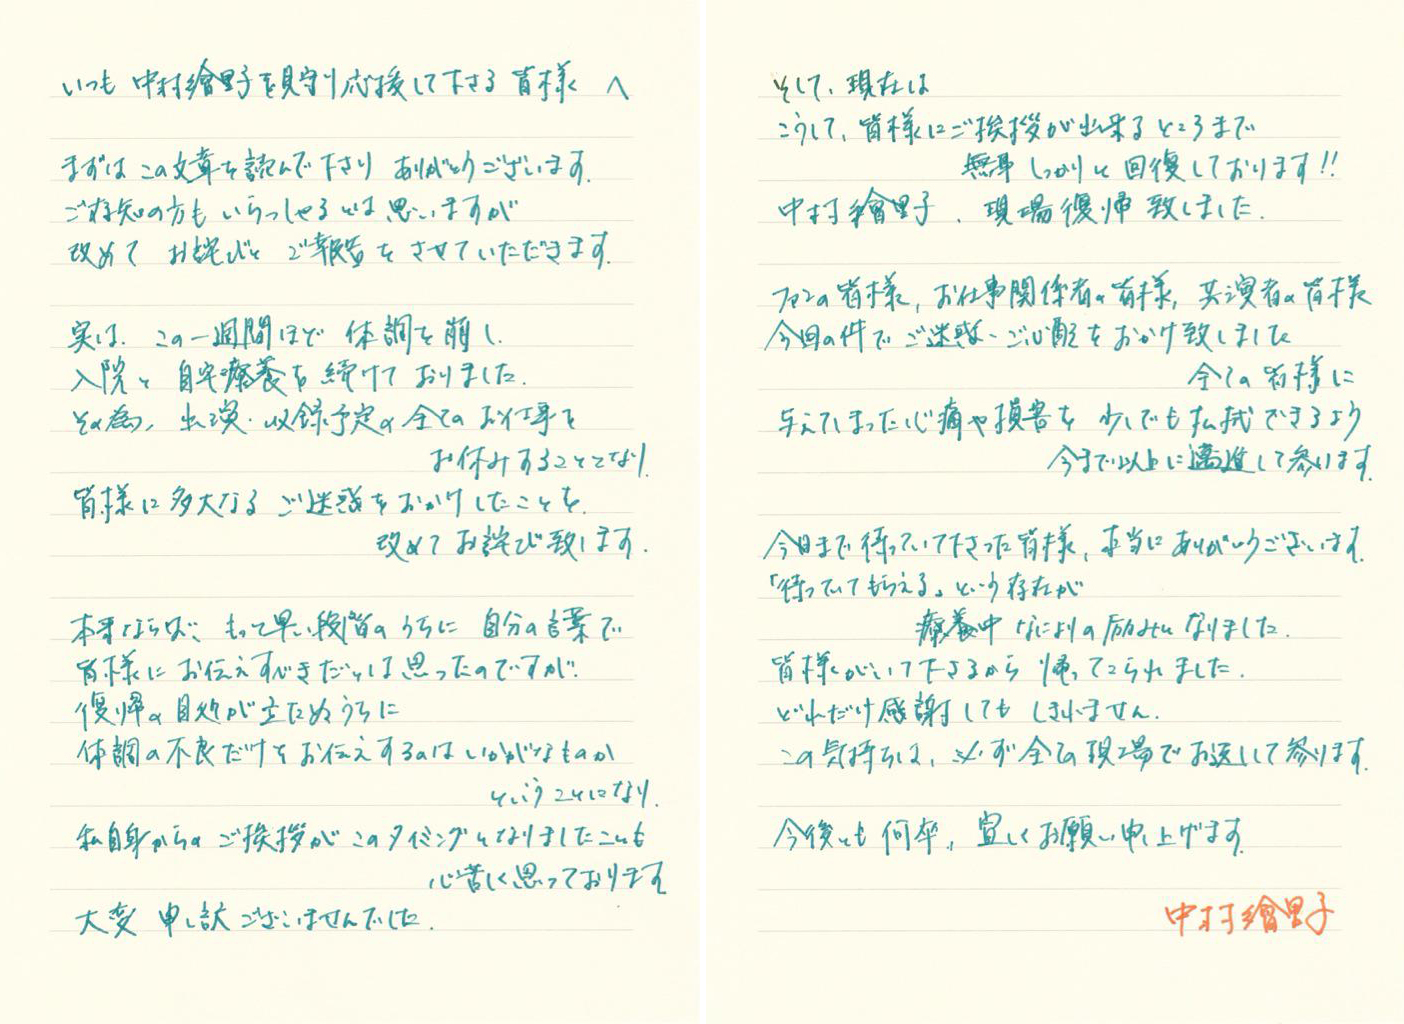 いつも 中村繪里子を見守り応援して下さる 皆様 へ
まずは この文章を読んで下さり ありがとうございます.
ご存知の方も いらっしゃるとは 思いますが
改めて お詫びと ご報告を させていただきます.
実は、この一週間ほど 体調を崩し、
入院と 自宅療養を 続けて おりました.
その為、出演・収録予定の 全ての お仕事を
お休みすることとなり、
皆様に 多大なる ご迷惑を おかけしたことを、
改めて お詫び致します.
本来ならば、もって早い段階の うちに 自分の言葉で
皆様に お伝えすべきだとは 思ったのですが、
復帰の 目処が 立たぬうちに
体調の不良だけを お伝えするのは いかがなものか
ということになり、
私自身からの ご挨拶が このタイミングとなりましたことも
心苦しく思っております
大変 申し訳ございませんでした.
そして、現在は
こうして、皆様にご挨拶が出来るところまで
無事 しっかりと 回復しております!!
中村繪里子、現場復帰 致しました.
ファンの皆様, お仕事関係者の皆様, 共演者の皆様
今回の件で ご迷惑・ご心配を おかけ致しました
全ての 皆様に
与えてしまった心痛や損害を 少しでも払拭できるよう
今まで以上に邁進して参ります.
今日まで 待っていて下さった 皆様, 本当に ありがとうございます.
「待っていてもらえる」という存在が
療養中 なによりの励みになりました.
皆様がいて下さるから 帰ってこられました.
どれだけ 感謝しても しきれません.
この気持ちは、必ず 全ての 現場で お返しして参ります.
今後とも 何卒, 宜しくお願い申し上げます.
中村繪里子